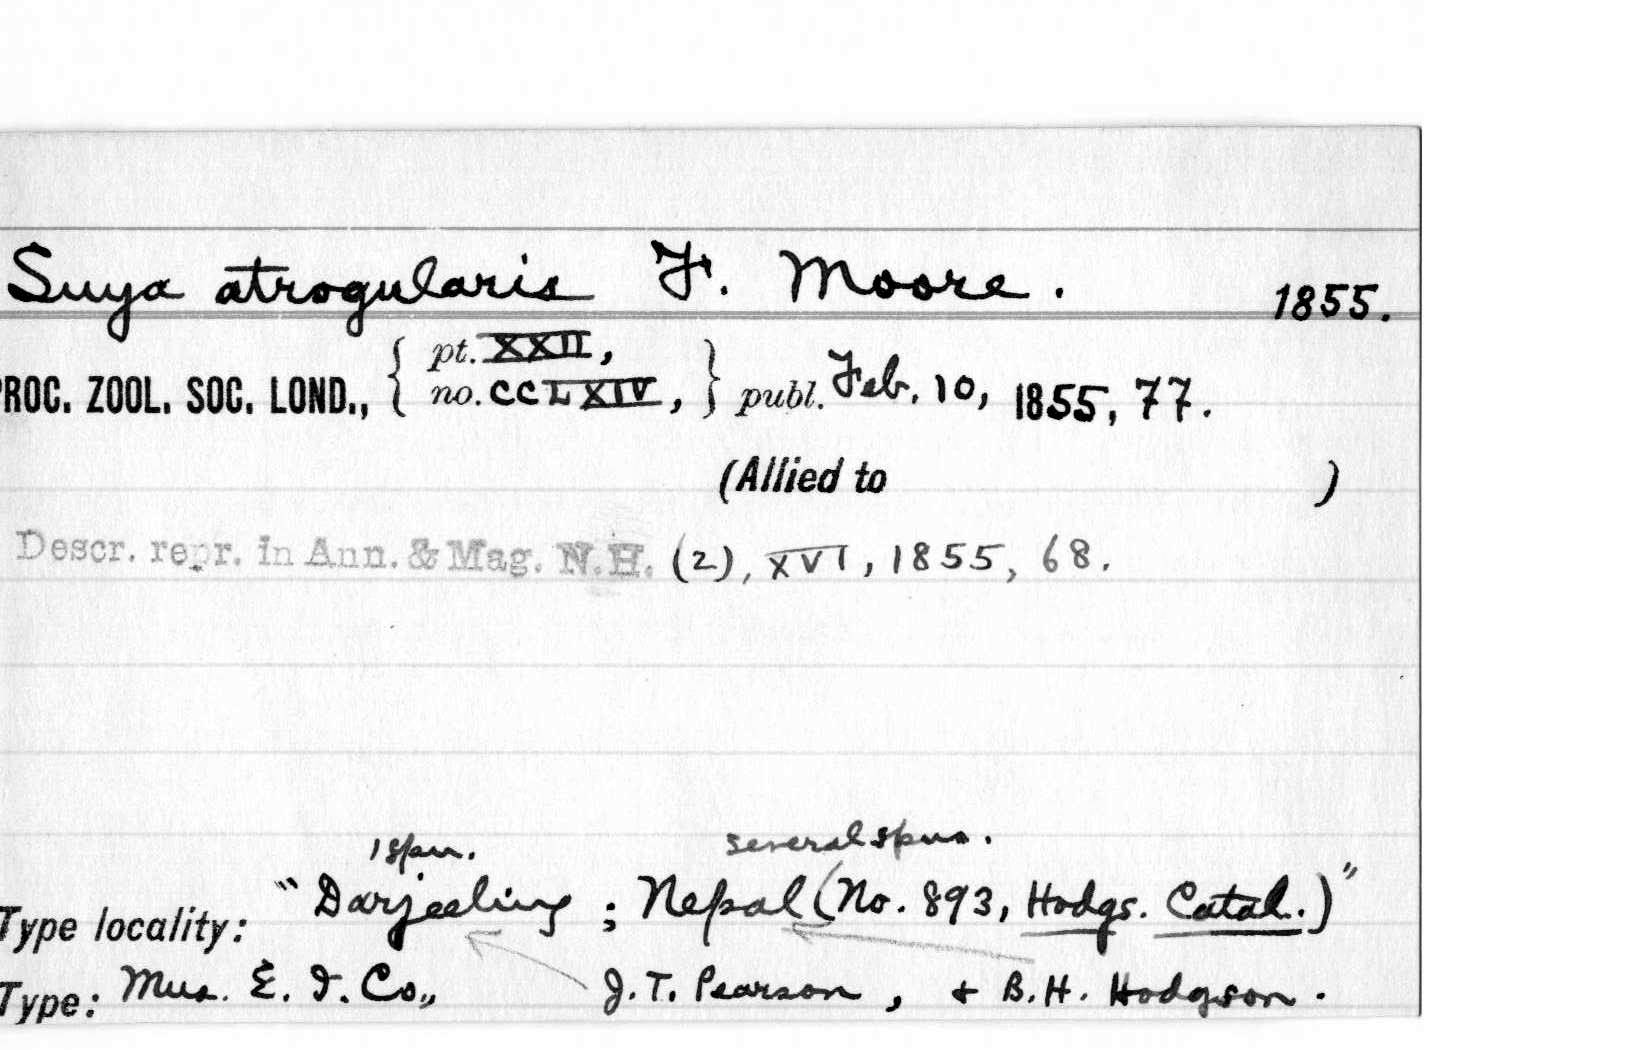 Suya atrogularis F. Moore. 1855.
PROC. ZOOL. SOC. LOND., { pt. XXII, no. CCLXIV, } publ. Feb. 10, 1855, 77.
(Allied to )
Descr. repr. in Ann. & Mag. N.H. (2), XVI, 1855, 68.
1 spm. several spms.
Type locality: "Darjeeling ; Nepal (No. 893, Hodgs. Catal.)"
Type: Mus. E. I. Co., J. T. Pearson, + B. H. Hodgson.